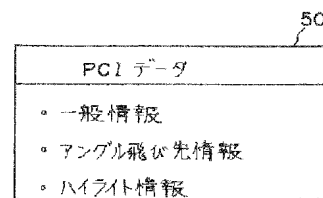 50
PCI データ
• 一般情報
• アングル飛び先情報
• ハイライト情報